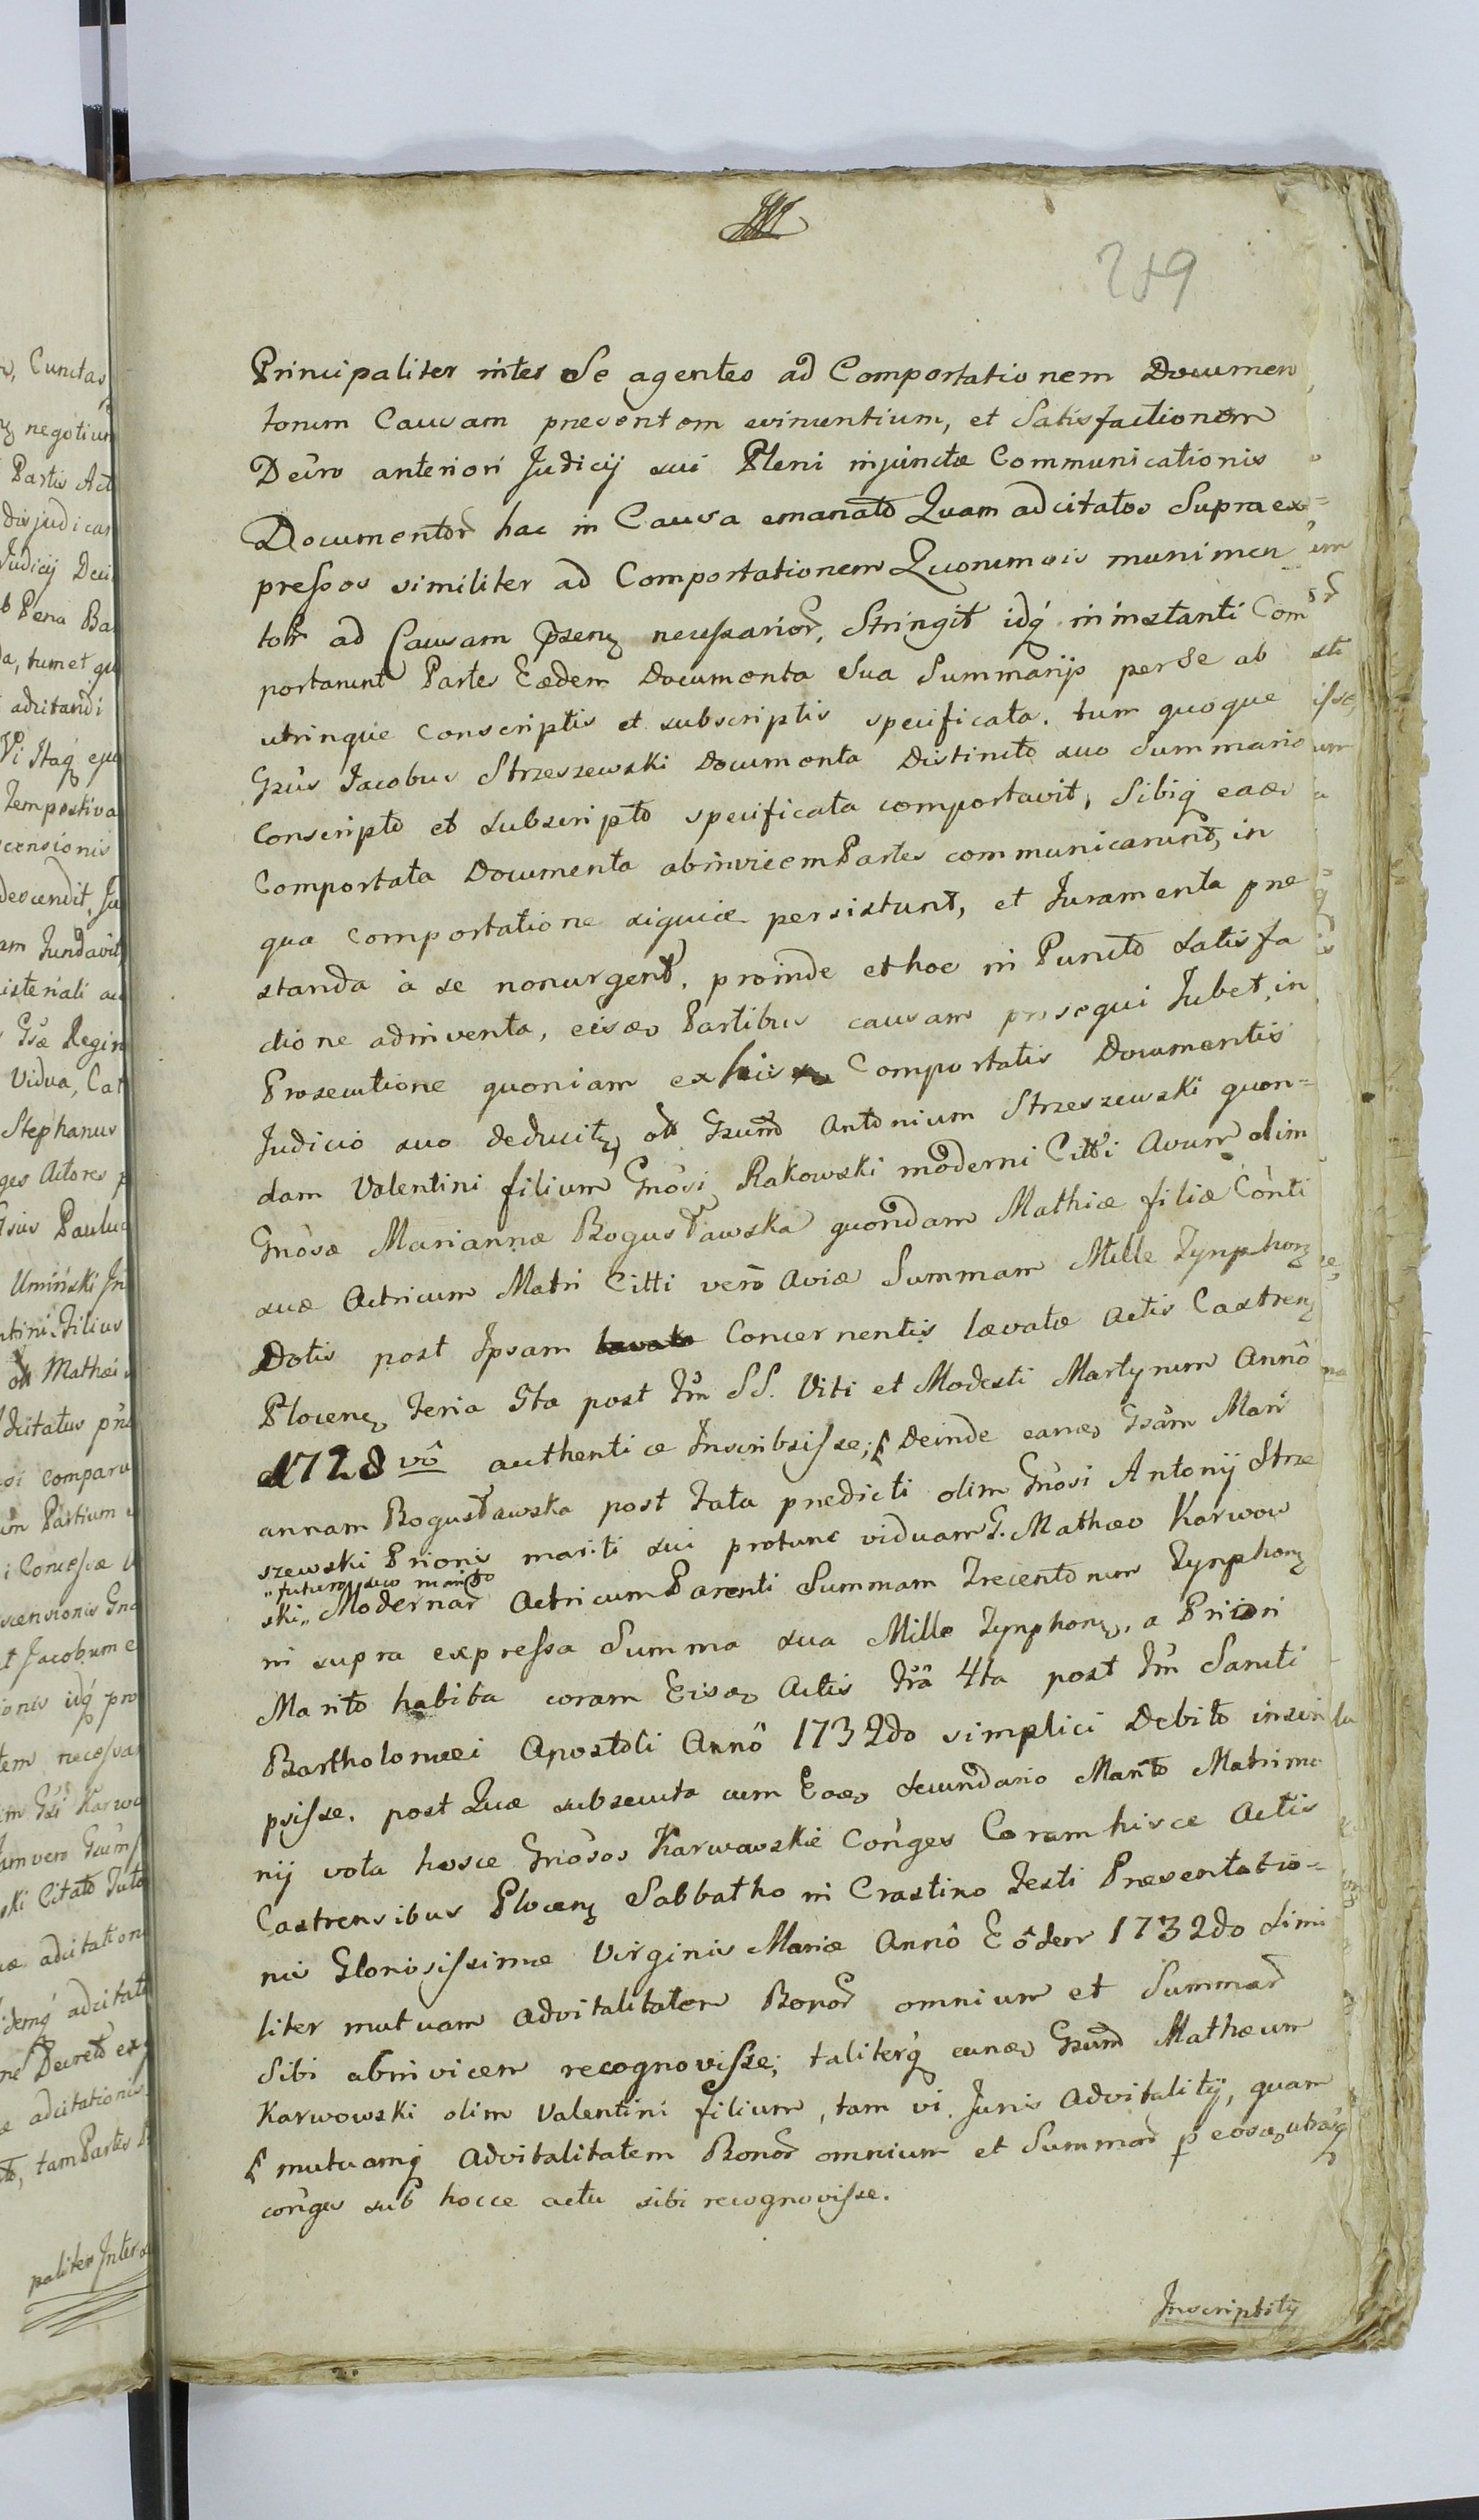 249
Principaliter inter Se agentes ad Comportationem Documen
torum Causam presentem evincentium, et Satisfactionem
Decro anteriori Judicij sui Pleni injunctæ Communicationis
Documentor hac in Causa emanato Quam adcitatos Supra ex=
preſsos similiter ad Comportationem Quorumvis munimen
tor ad Causam pzenz neceſsarior, Stringit idq in instanti Com
portarunt Partes Eædem Documenta Sua Summarijs per Se ab
utrinque conscriptis et subscriptis specificata. tum quoque
Gsus Jacobus Strzeszewski Documenta Distincto suo Summario
Conscripto et subscripto specificata comportavit, Sibiq eaæ
Comportata Documenta abinvicem Partes communicarunt, in
qua comportatione siquidem persistunt, et Juramenta præ
standa à se non urgent, proinde et hoc in Puncto satisfa
ctione adinventa, eisdem Partibus causam prosequi Jubet, in
Prosecutione quoniam ex his Comportatis Documentis
Judicio suo deducitz, olim Gsum Antonium Strzeszewski quon=
dam Valentini filium Gnosi Rakowski moderni Citti Avum olim
Gnosæ Mariannæ Bogusławska quondam Mathiæ filiæ Conti
suæ Actricum Matri Citti vero Aviæ Summam Mille Tynphorz
Dotis post Ipsam Concernentis lævatæ Actis Castrenz
Plocenz Feria 5ta post Fm SS. Viti et Modesti Martyrum Anno
1728 vo authentice Inscribsiſse; Deinde eandem Gsam Mari
annam Bogusławska post Fata predicti olim Gnosi Antonij Strze
szewski Prioris mariti sui protunc viduam G. Mathæo Karwow
"futuro suo marito
ski" Modernar Actricum Parenti Summam Trecentorum Tynphorz
in supra expreſsa Summa sua Mille Tynphorz, a Priori
Marito habita coram Eisdem Actis Fra 4ta post Fm Sancti
Bartholomæi Apostoli Anno 1732do simplici Debito inscri
psiſse. post Quæ subsecuta cum Eodem secundario Marito Matrimo
nij vota hosce Gnosos Karwowskie Conges Coram hisce Actis
Castrensibus Plocenz Sabbatho in Crastino Festi Præsentatio=
nis Glorosiſsimæ Virginis Mariæ Anno Eodem 1732do Simi
liter mutuam Advitalitatem Bonor omnium et Summar
Sibi abinvicem recognoviſse; taliterq eundem Gsum Mathæum
Karwowski olim Valentini filium, tam vi Juris Advitalitij, quam
mutuamq Advitalitatem Bonor omnium et Summar p eosdem utrosq
conges sub hocce actu sibi recognoviſse.
Inscriptity